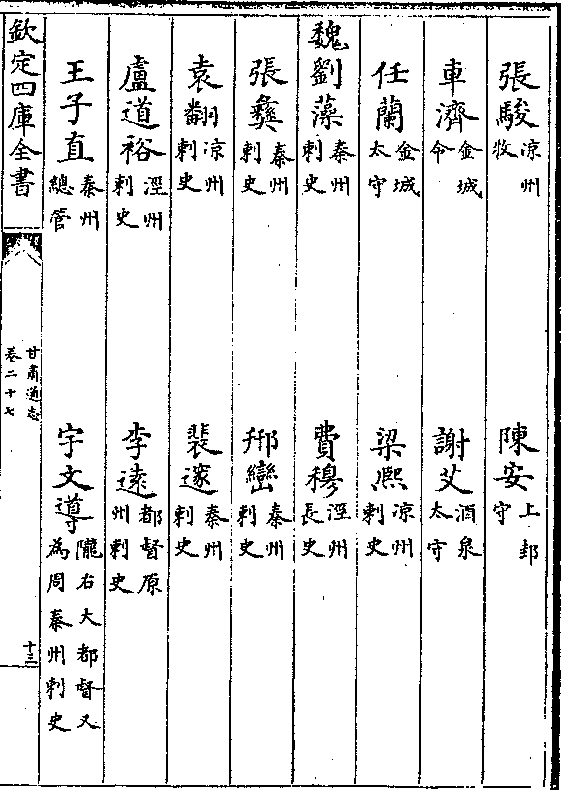 張駿涼州牧 陳安上邽守
車濟金城令 謝艾酒泉太守
任蘭金城太守 梁熈涼州刺史
魏劉藻秦州刺史 費穆涇州長史
張彝秦州刺史 邢巒秦州刺史
袁翻涼州刺史 裴邃秦州刺史
盧道裕涇州刺史 李遠都督原州刺史
王子直秦州總管 宇文導隴右大都督又為周秦州刺史
欽定四庫全書 甘肅通志卷二十七 十三